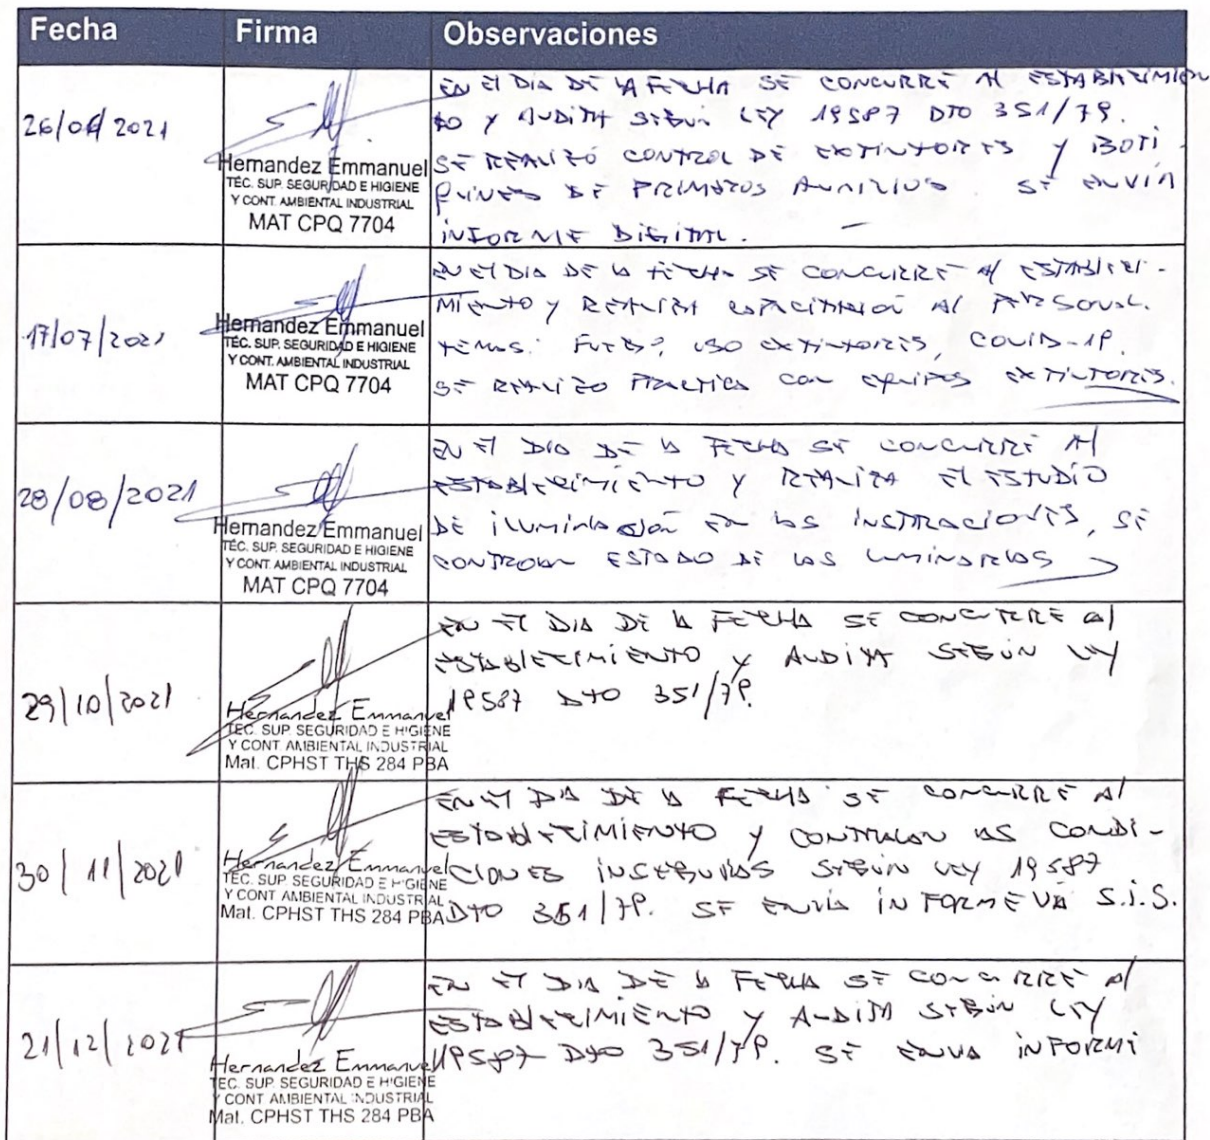 Fecha Firma Observaciones
26/06/2021
Hernandez Emmanuel
TÉC. SUP. SEGURIDAD E HIGIENE
Y CONT. AMBIENTAL INDUSTRIAL
MAT CPQ 7704
EN El DIA DE LA FECHA SE CONCURRE Al ESTABlECIMIEN
TO Y AUDITA SEGUN LEY 19587 DTO 351/79.
SE REALIZÓ CONTROL DE EXTINTORES Y BOTI
QUINES DE PRIMEROS AUXILIOS. SE ENVÍA
INFORME DIGITAL.
17/07/2021
Hernandez Emmanuel
TÉC. SUP. SEGURIDAD E HIGIENE
Y CONT. AMBIENTAL INDUSTRIAL
MAT CPQ 7704
EN El DIA DE LA FECHA SE CONCURRE Al ESTABlECI-
MIENTO Y REALIZA CAPACITACIÓN Al PERSONAL.
TEMAS: FUEGO, USO EXTINTORES, COVID-19.
SE REALIZO PRACTICA CON EQUIPOS EXTINTORES.
28/08/2021
Hernandez Emmanuel
TÉC. SUP. SEGURIDAD E HIGIENE
Y CONT. AMBIENTAL INDUSTRIAL
MAT CPQ 7704
EN El DIA DE LA FECHA SE CONCURRE Al
ESTABlECIMIENTO Y REALIZA El ESTUDIO
DE ILUMINACIÓN EN LAS INSTALACIONES, SE
CONTROLAN ESTADO DE LAS LUMINARIAS
29/10/2021
Hernandez Emmanuel
TEC. SUP. SEGURIDAD E HIGIENE
Y CONT. AMBIENTAL INDUSTRIAL
Mat. CPHST THS 284 PBA
EN El DIA DE LA FECHA SE CONCURRE al
ESTABlECIMIENTO Y AUDITA SEGÚN LEY
19587 DTO 351/79.
30/11/2021
Hernandez Emmanuel
TEC. SUP. SEGURIDAD E HIGIENE
Y CONT AMBIENTAL INDUSTRIAL
Mat. CPHST THS 284 PBA
EN El DIA DE LA FECHA SE CONCURRE Al
ESTABlECIMIENTO Y CONTROLAN LAS CONDI-
CIONES INSEGURAS SEGÚN LEY 19587
DTO 351/79. SE ENVÍA INFORME VÍA S.I.S.
21/12/2021
Hernandez Emmanuel
TEC. SUP. SEGURIDAD E HIGIENE
Y CONT AMBIENTAL INDUSTRIAL
Mat. CPHST THS 284 PBA
EN El DIA DE LA FECHA SE CONCURRE Al
ESTABlECIMIENTO Y AUDITA SEGÚN LEY
19587 DTO 351/79. SE ENVIA INFORME